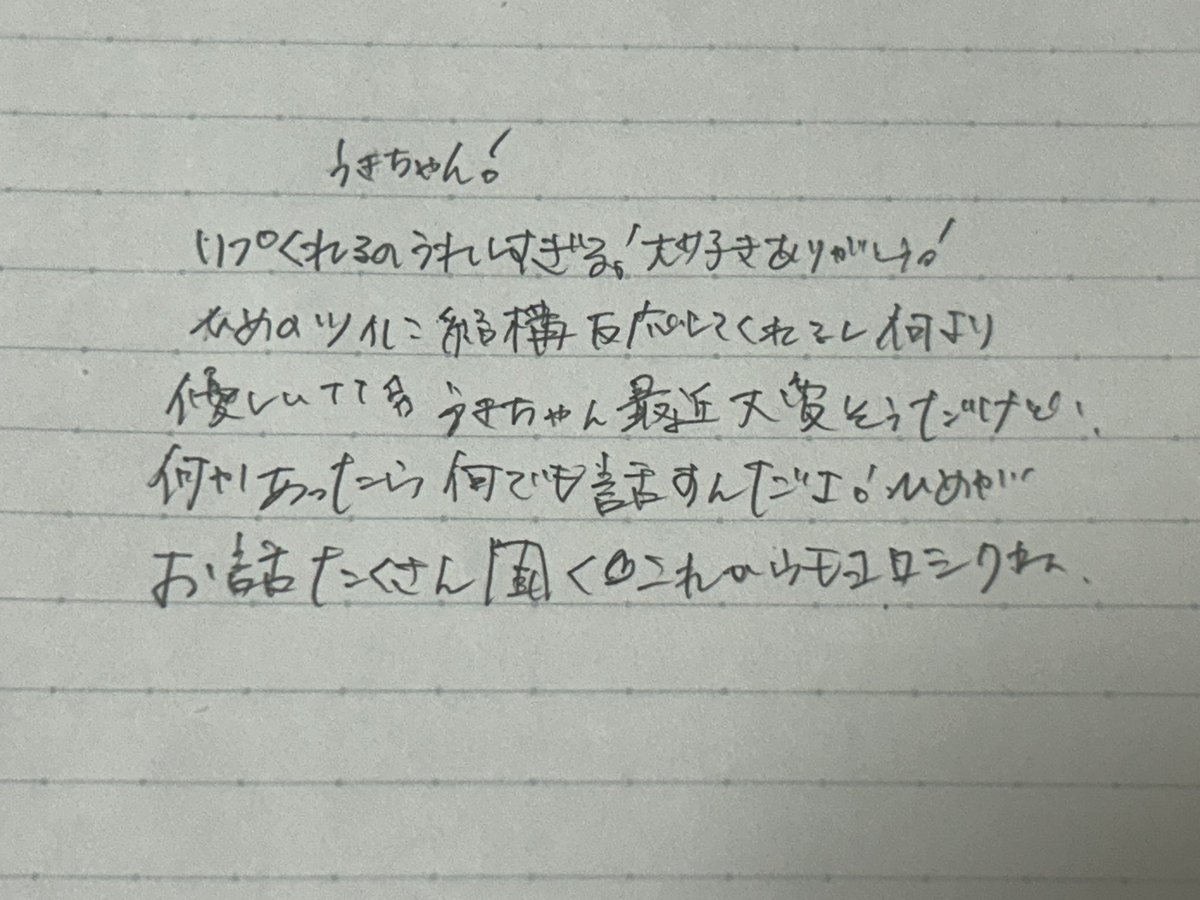 うきちゃん!
りぷくれるのうれしすぎる!大好きありがとう!
ひめのツイに結構反応してくれるし何より
優しい うきちゃん最近大変そうだけど、
何かあったら何でも話すんだよ!ひめが
お話たくさん聞く これからもヨロシクね、